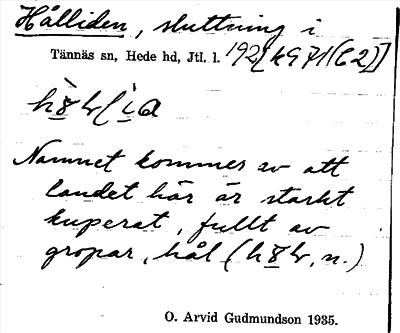 Hålliden, sluttning i
Tännäs sn, Hede hd, Jtl. l. 192[KG71(C2)]
Namnet kommer av att
landet här är starkt
kuperat, fullt av
gropar, hål (
O. Arvid Gudmundson 1935.